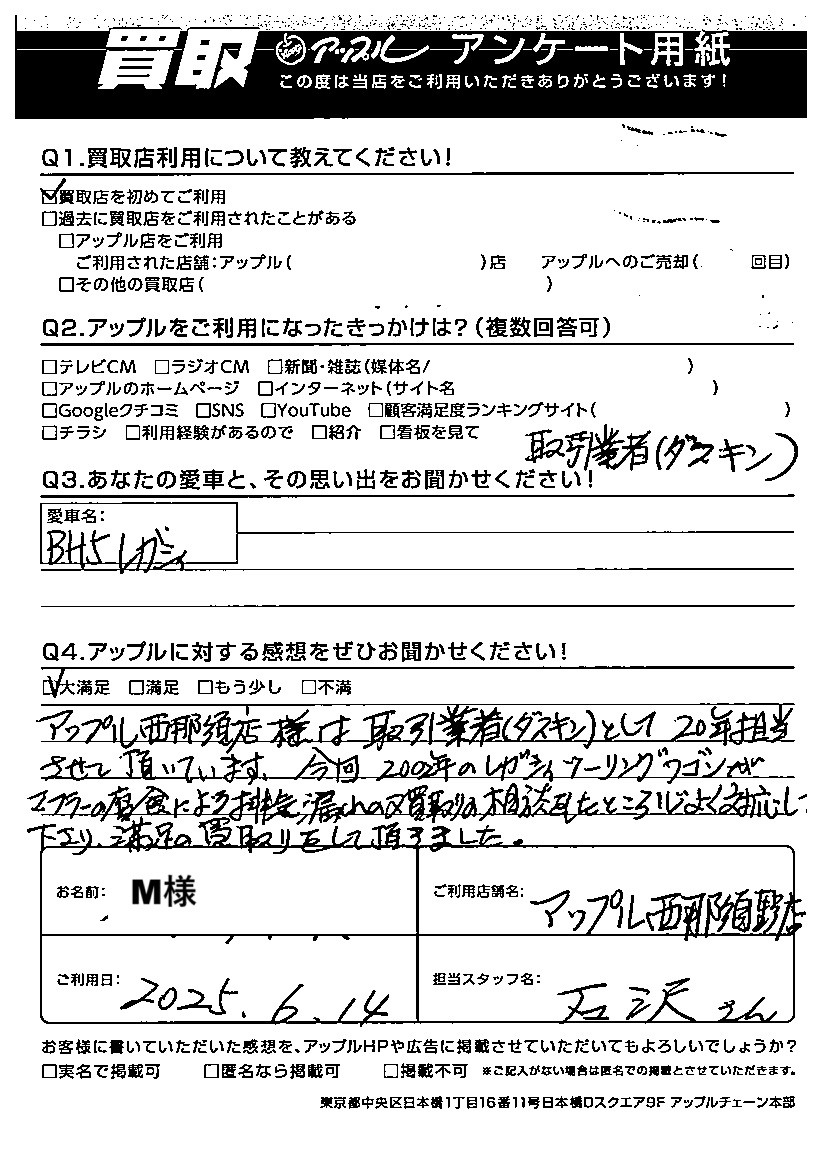 買取 アップル アンケート用紙
この度は当店をご利用いただきありがとうございます!
Q1.買取店利用について教えてください!
☑買取店を初めてご利用
□過去に買取店をご利用されたことがある
□アップル店をご利用
ご利用された店舗:アップル( )店 アップルへのご売却( 回目)
□その他の買取店( )
Q2.アップルをご利用になったきっかけは?(複数回答可)
□テレビCM □ラジオCM □新聞・雑誌(媒体名/ )
□アップルのホームページ □インターネット(サイト名 )
□Googleクチコミ □SNS □YouTube □顧客満足度ランキングサイト( )
□チラシ □利用経験があるので □紹介 □看板を見て
取引業者(ダスキン)
Q3.あなたの愛車と、その思い出をお聞かせください!
愛車名:
BH5レガシィ
Q4.アップルに対する感想をぜひお聞かせください!
☑大満足 □満足 □もう少し □不満
アップル西那須店様は取引業者(ダスキン)として20年担当
させて頂いています。今回2002年のレガシィツーリングワゴンが
マフラーの腐食による排気漏れの為買取りの相談をしたところ心よく対応して
下さり、満足の買取りをして頂きました。
お名前: M様
ご利用店舗名: アップル西那須野店
ご利用日: 2025.6.14
担当スタッフ名: 石沢さん
お客様に書いていただいた感想を、アップルHPや広告に掲載させていただいてもよろしいでしょうか?
□実名で掲載可 □匿名なら掲載可 □掲載不可 ※ご記入がない場合は匿名での掲載とさせていただきます。
東京都中央区日本橋1丁目16番11号日本橋Dスクエア9F アップルチェーン本部